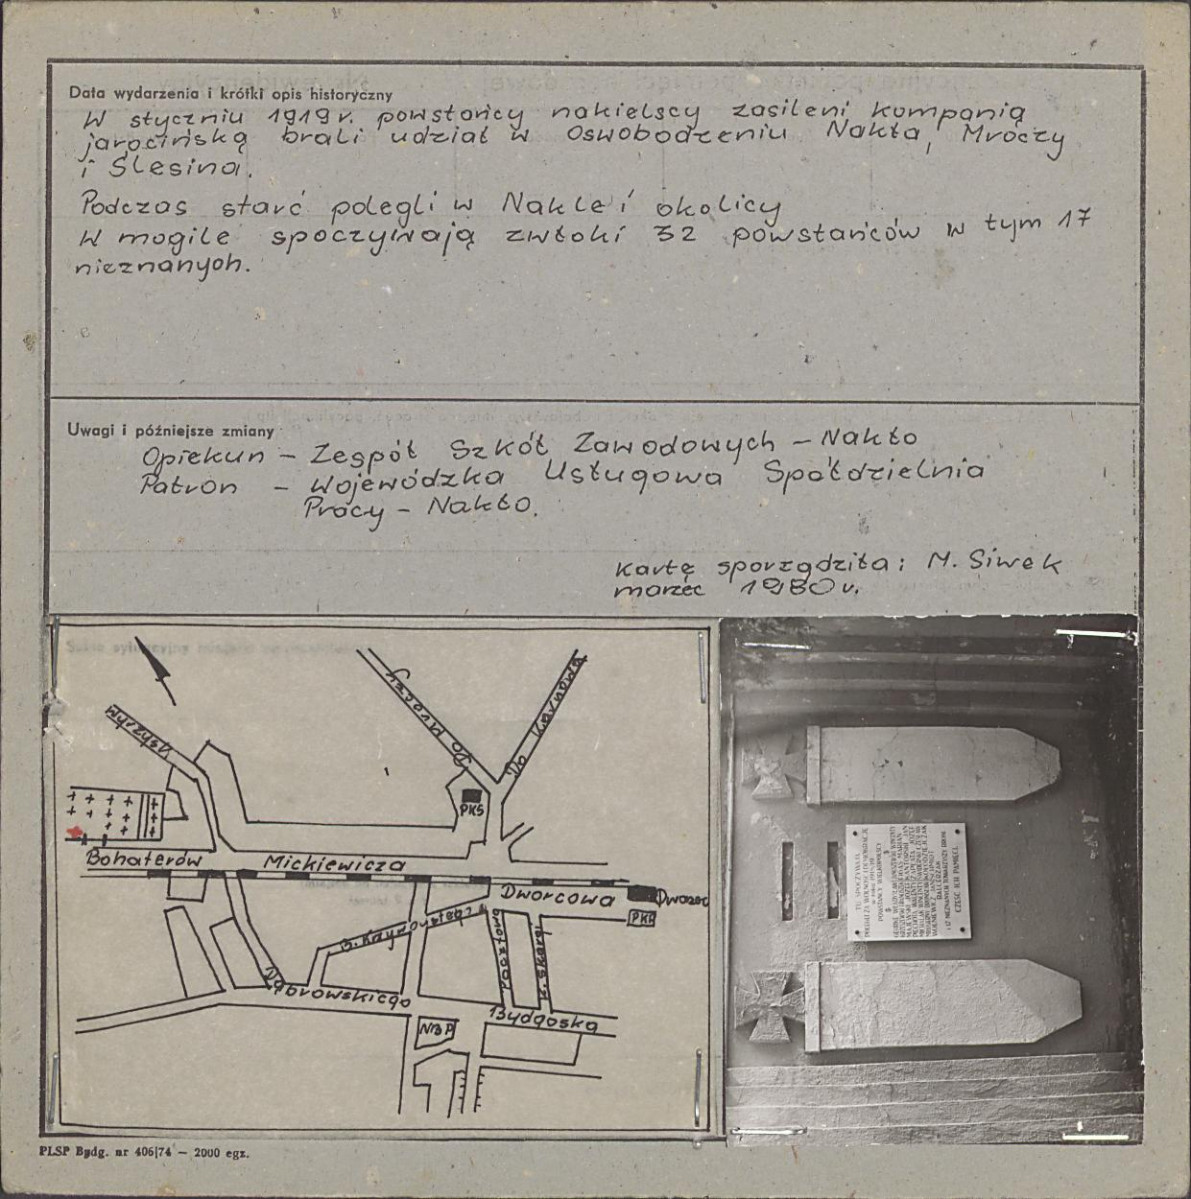 Data wydarzenia i krótki opis historyczny
W styczniu 1919 r. powstańcy nakielscy zasileni kompanią
jarocińską brali udział w oswobodzeniu Nakła, Mroczy
i Ślesina.
Podczas starć polegli w Nakle i okolicy
W mogile spoczywają zwłoki 32 powstańców w tym 17
nieznanych.
Uwagi i późniejsze zmiany
Opiekun – Zespół Szkół Zawodowych – Nakło
Patron – Wojewódzka Usługowa Spółdzielnia
Pracy – Nakło.
Kartę sporządziła: M. Siwek
marzec 1980 r.
Wyrzysk
Do Mroczy
Do Karnowa
PKS
Bohaterów
Mickiewicza
Dworcowa
Dworzec
PKP
Pocztowa
Dąbrowskiego
Bydgoska
NBP
TU SPOCZYWAJĄ
POWSTAŃCY WIELKOPOLSCY
CZEŚĆ ICH PAMIĘCI
PLSP Bydg. nr 406|74 — 2000 egz.